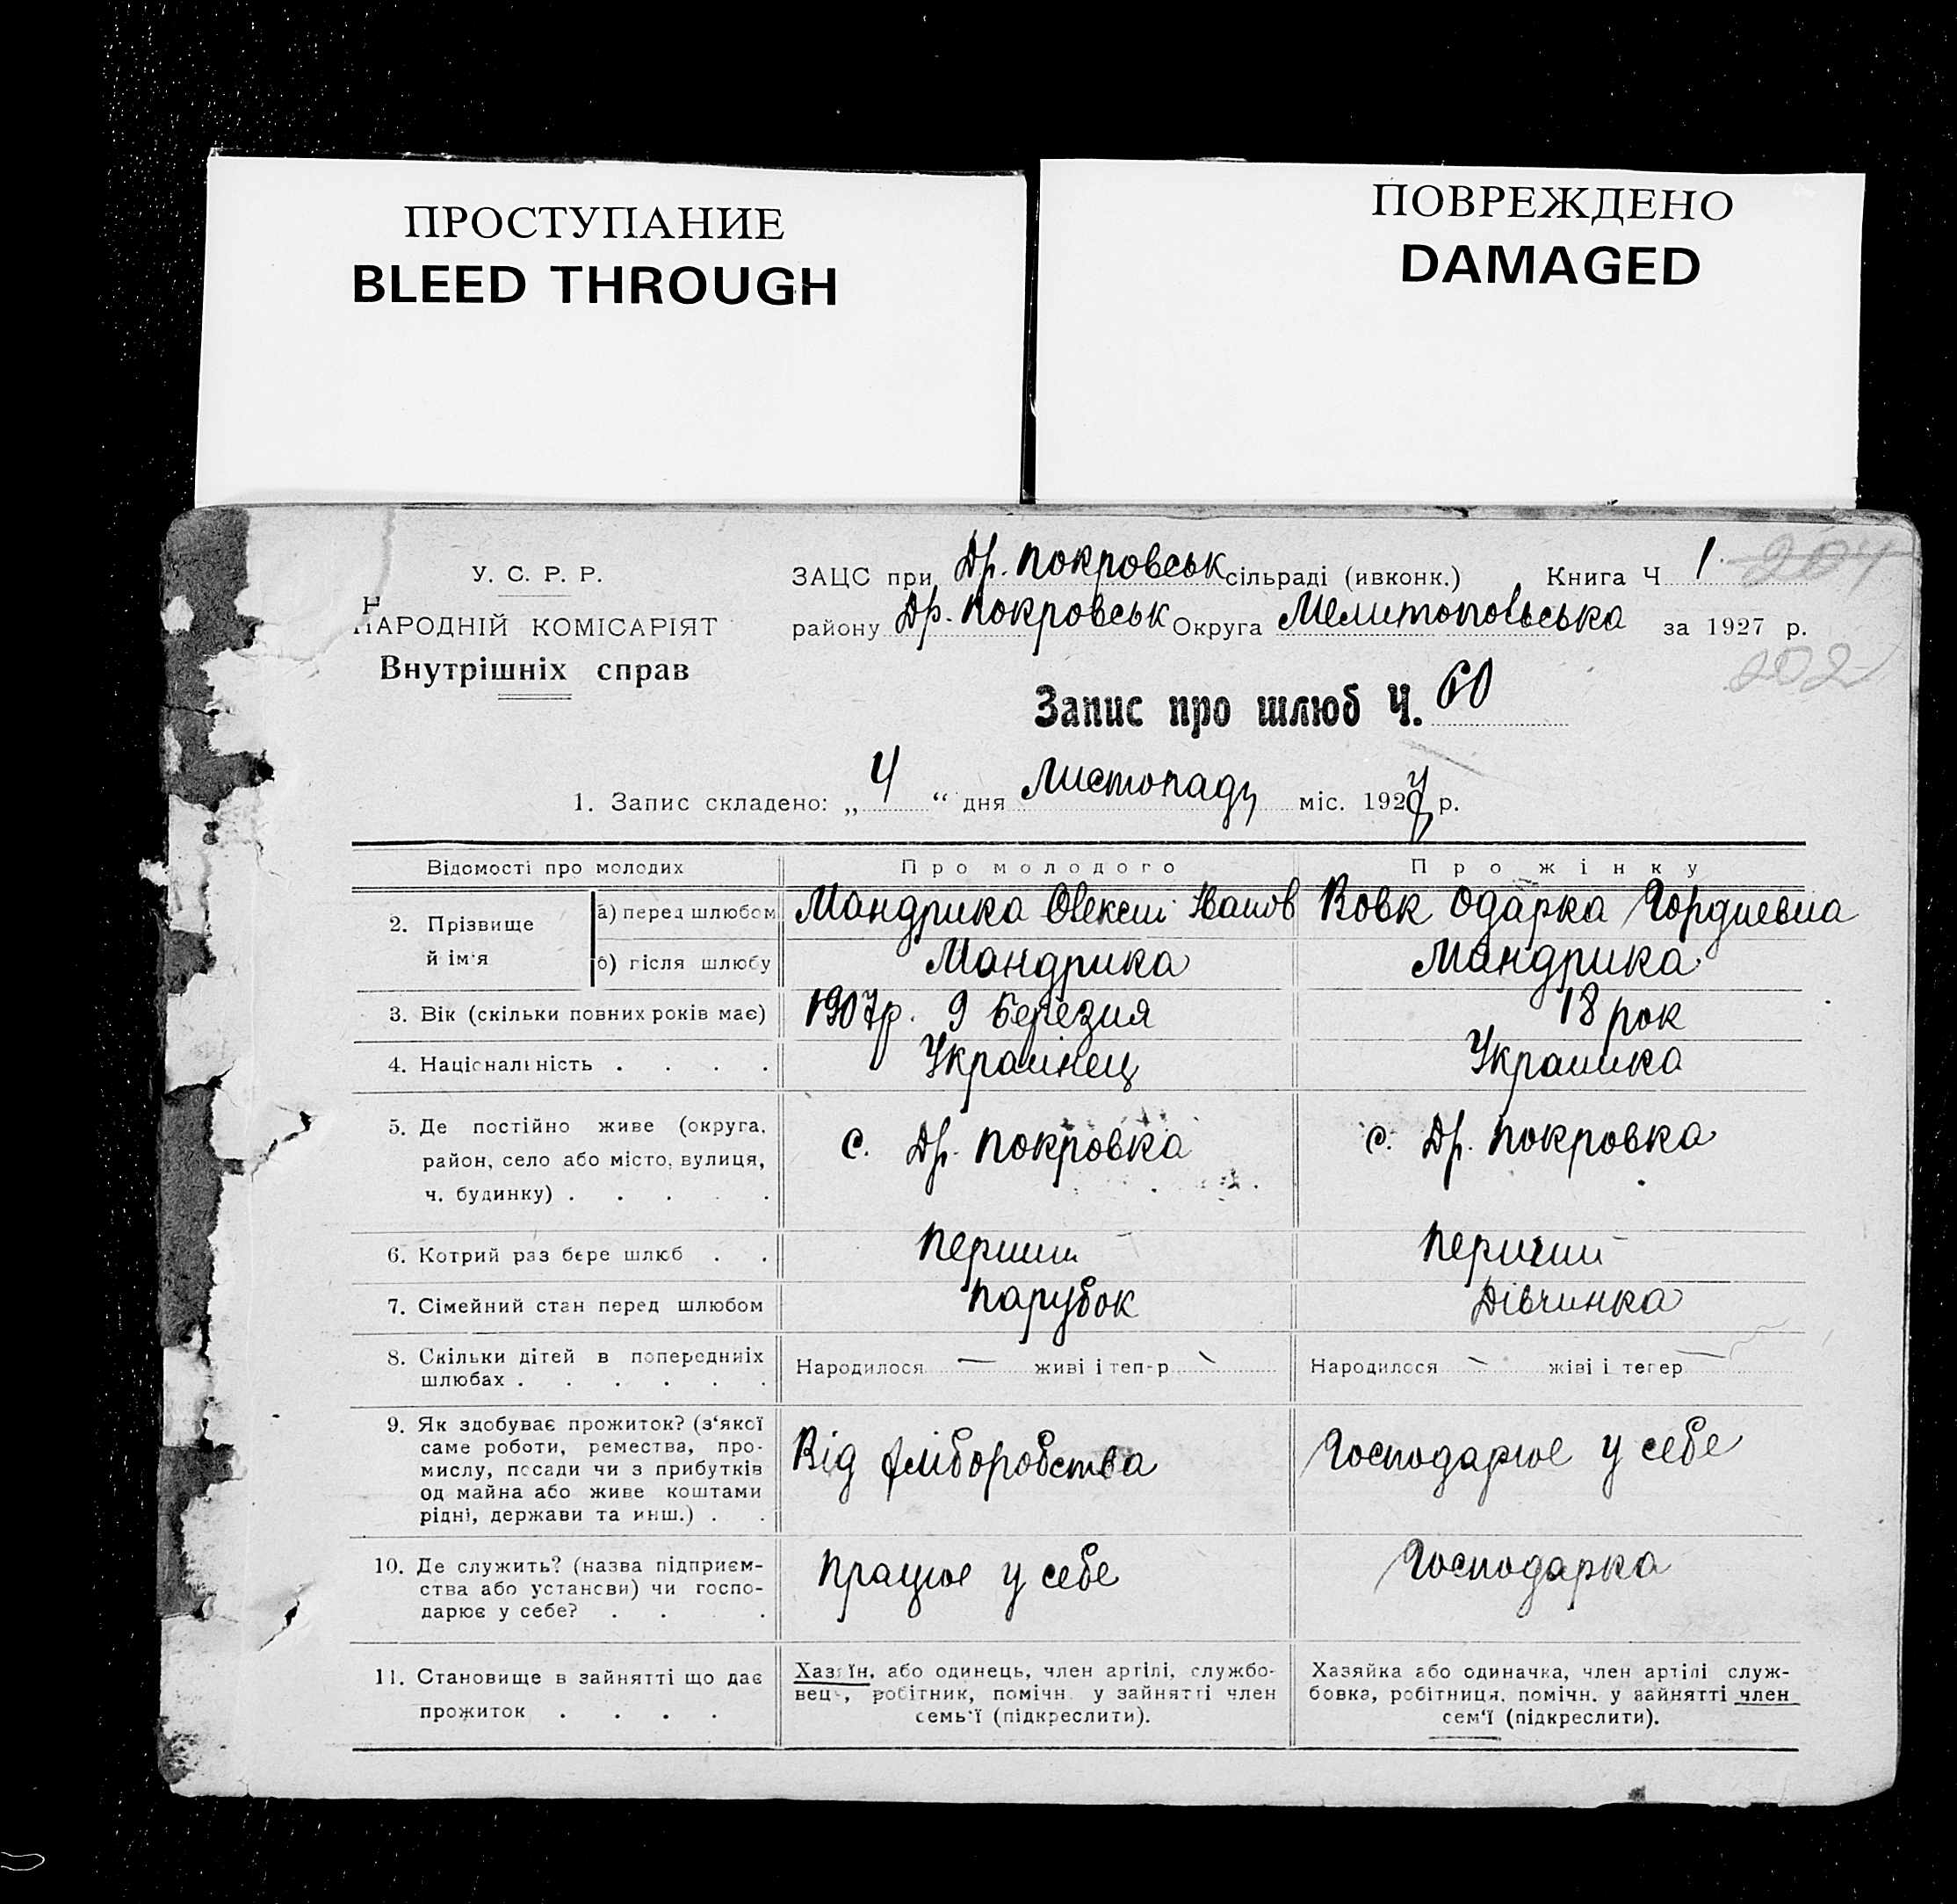 ПРОСТУПАНИЕ
BLEED THROUGH
ПОВРЕЖДЕНО
DAMAGED
У. С. Р. Р.
НАРОДНІЙ КОМІСАРІЯТ
Внутрішніх справ
ЗАЦС при Др. Покровськ сільраді (ивконк.) Книга Ч 1 204
району Др. Покровськ Округа Мелитопольська за 1927 р.
202
Запис про шлюб Ч. 60
1. Запис складено: „ 4 “ дня Листопаду міс. 1927 р.
Відомості про молодих Про молодого Про жінку
2. Прізвище й ім'я а) перед шлюбом Мандрика Олексій Іванов Вовк Одарка Гордиевна
б) після шлюбу Мандрика Мандрика
3. Вік (скільки повних років має) 1907р. 9 Березня 18 рок
4. Національність . . . . Украинец Украинка
5. Де постійно живе (округа, с. Др. Покровка с. Др. Покровка
район, село або місто, вулиця,
ч. будинку) . . . . .
6. Котрий раз бере шлюб . . Перший Перший
7. Сімейний стан перед шлюбом Парубок Дівчинка
8. Скільки дітей в попередніх Народилося — живі і тепер Народилося - жіві і тепер —
шлюбах . . . . . .
9. Як здобуває прожиток? (з'якої Від хліборобства Господарює у себе
саме роботи, ремества, про-
мислу, посади чи з прибутків
од майна або живе коштами
рідні, держави та инш.) . .
10. Де служить? (назва підприєм- Працює у себе Господарка
ства або установи) чи госпо-
дарює у себе? . . . .
11. Становище в зайнятті що дає
прожиток . . . .
Хазяїн, або одинець, член артілі, службо-
вець, робітник, помічн. у зайнятті член
семь'ї (підкреслити).
Хазяйка або одиначка, член артілі служ-
бовка, робітниця, помічн. у зайнятті член
сем'ї (підкреслити).